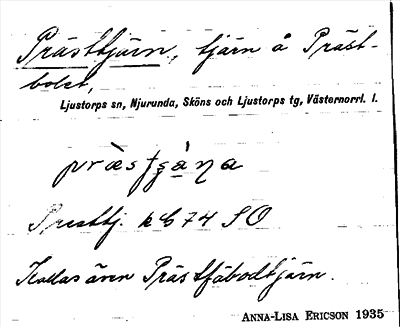 Prästtjärn, tjärn å Präst-
bolet,
Ljustorps sn, Njurunda, Sköns och Ljustorps tg, Västernorrl. l.
Presttj. kC 74 SO
Kallas även Prästfäbodtjärn.
ANNA-LISA ERICSON 1935